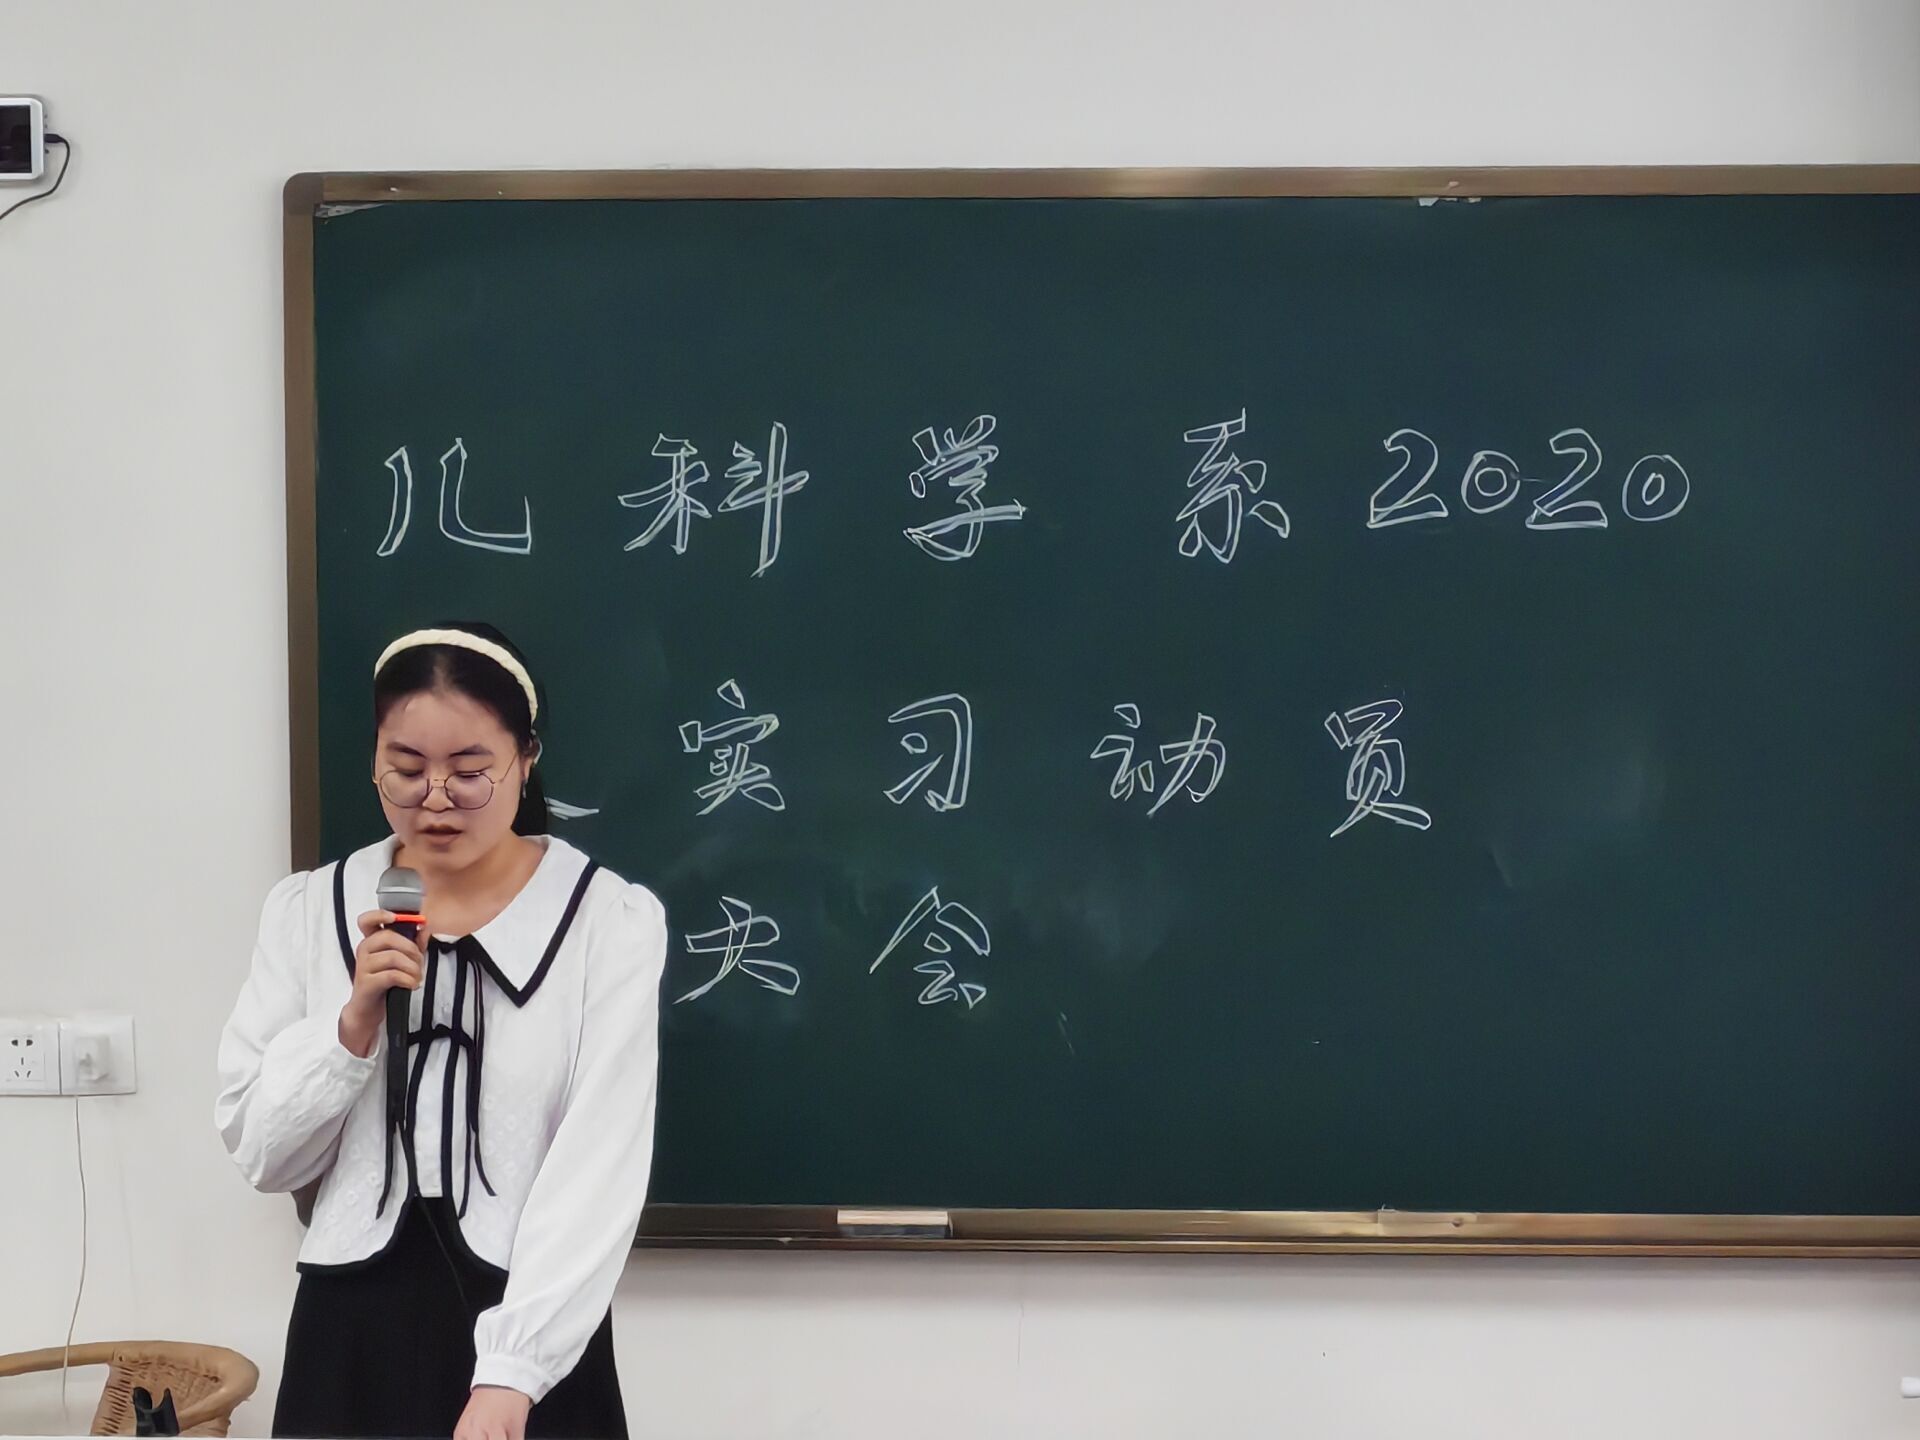 儿科学系2020
实习动员
大会